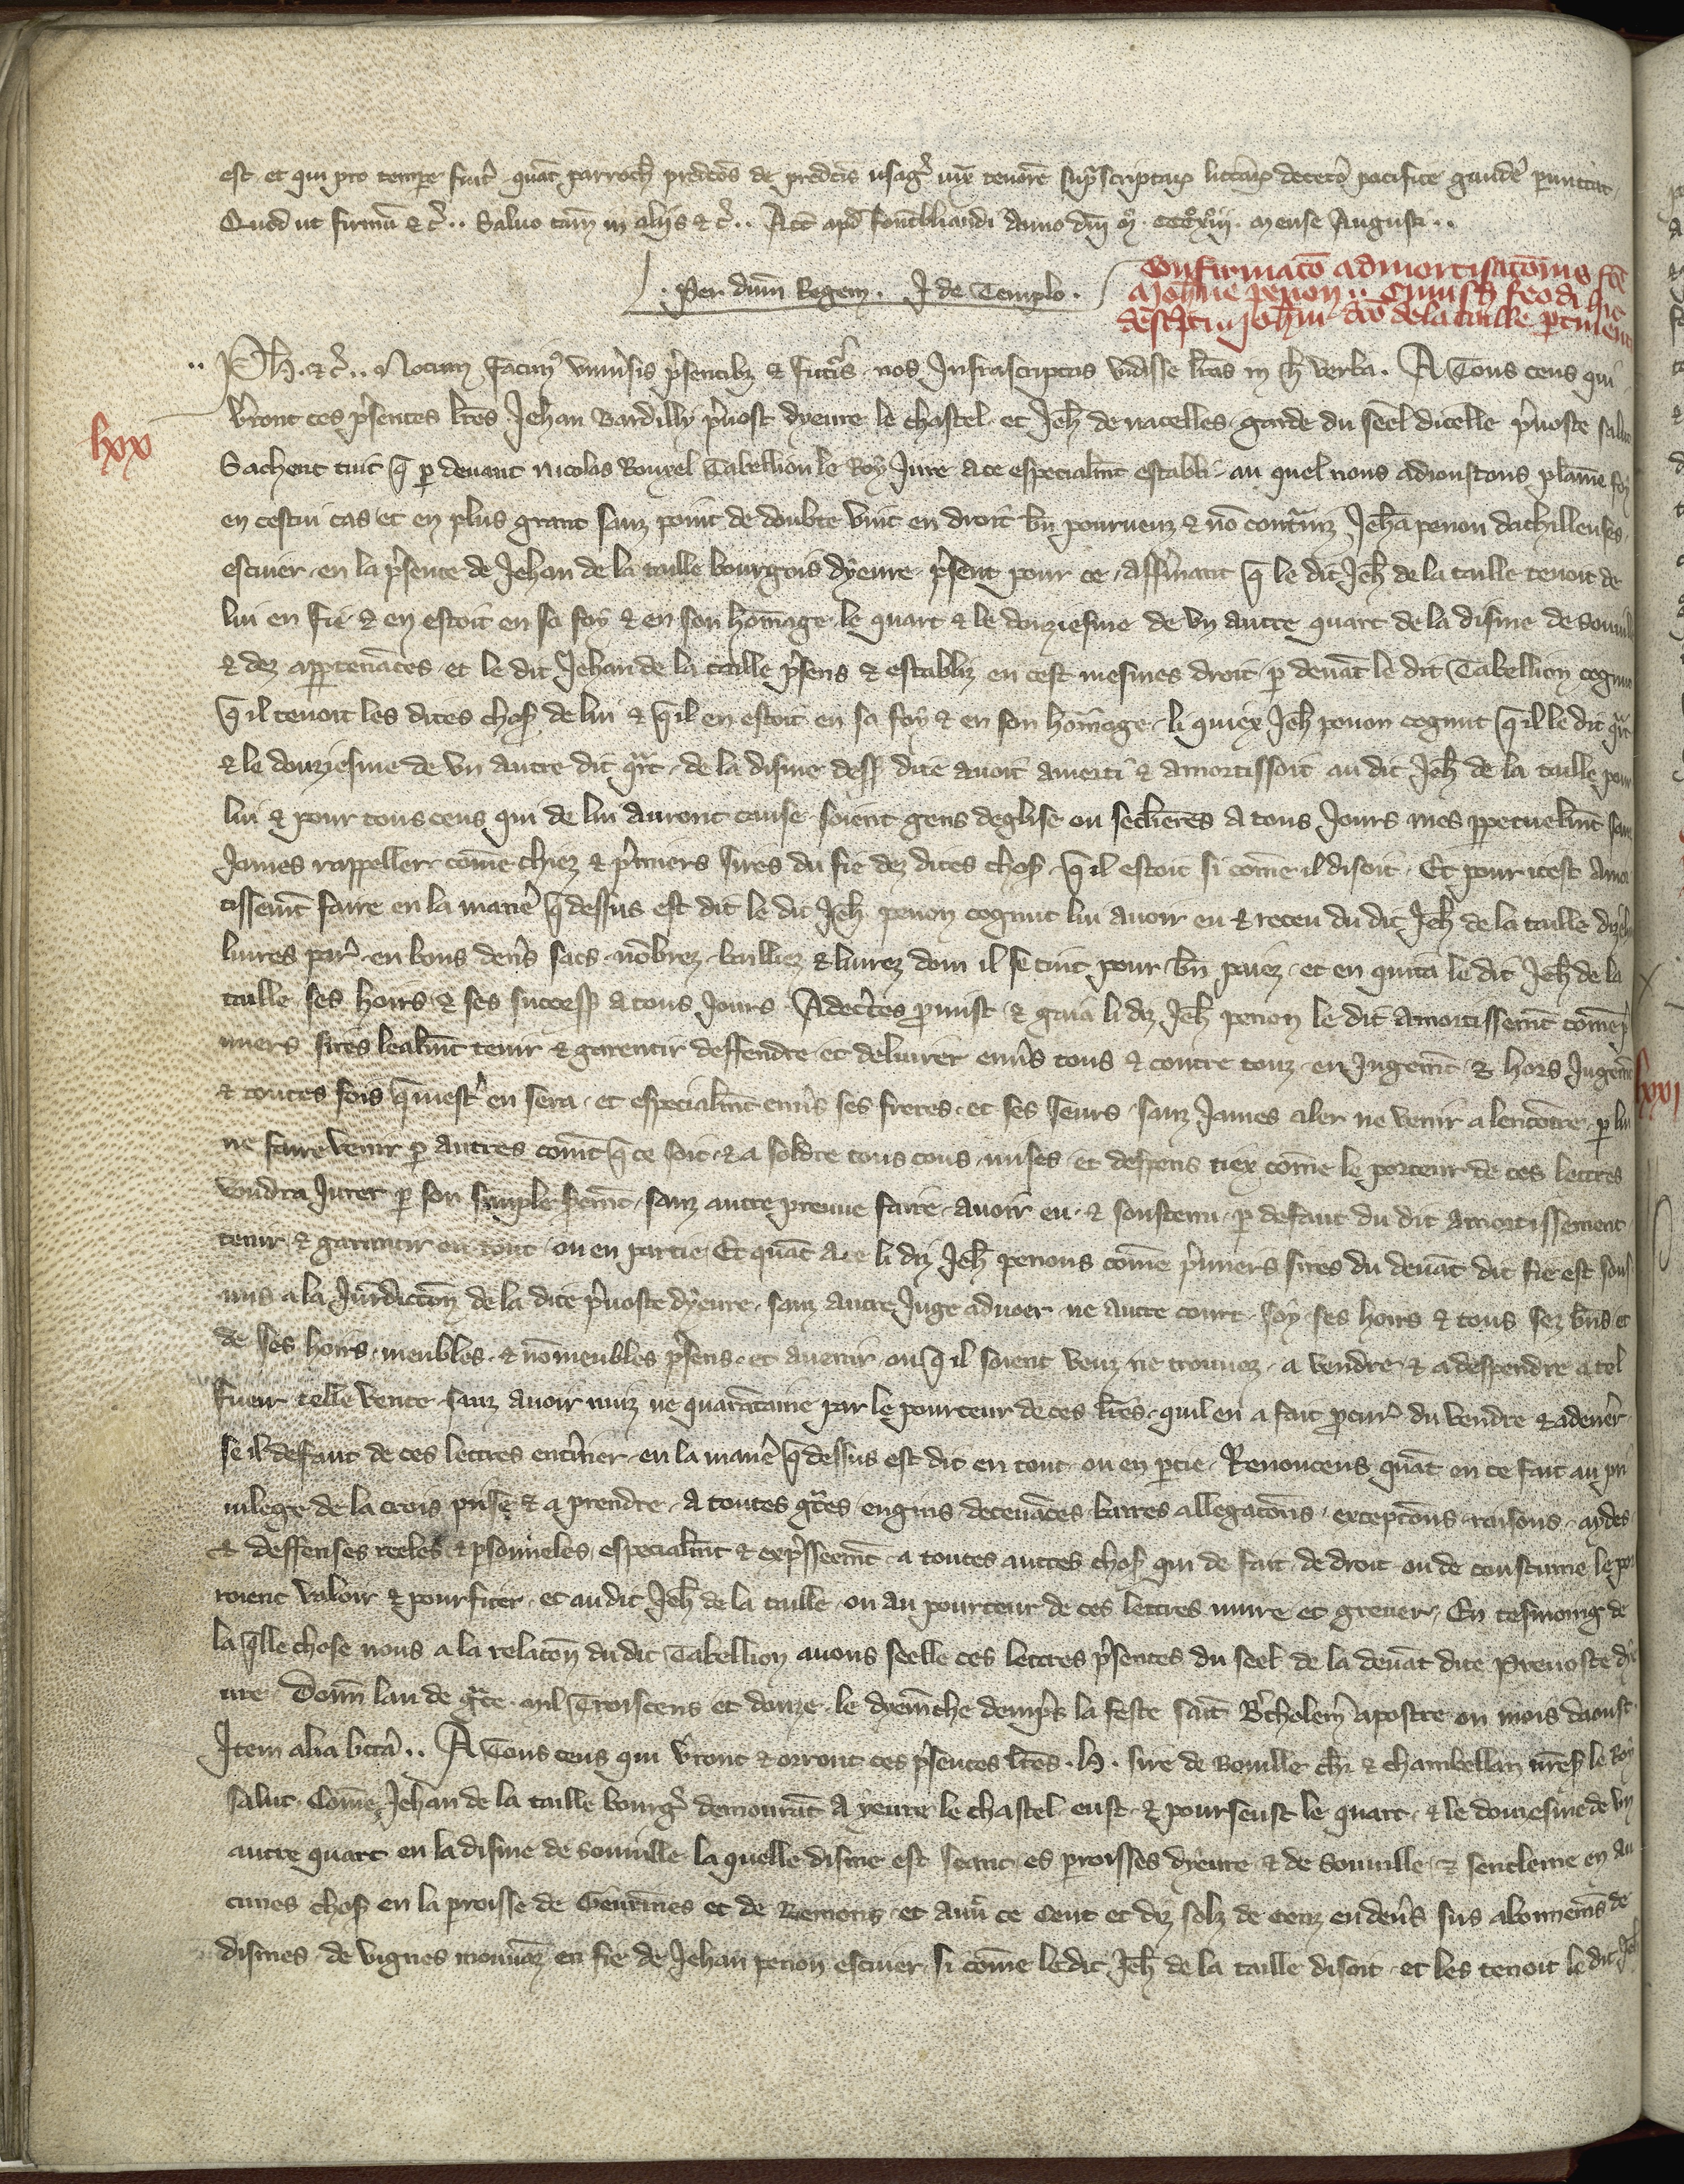 est et qui pro tempore fuit quat parroch predcos de predcis usag iux tenore supscriptar litterar decetero pacifice gaudere permittat
Quod ut firmu &c.. Saluo tam in aliis &c.. Act apd fontebliaudi Anno dni mº. cccº xiijº. mense Augusti..
. Per dnm Regem. J de Templo.
Confirmatō admortisatōnis fce
Joh̄ne penon
descpti Joh̄ni dco dela taille ptinent
.. Ph. &c.. Notum facim vniusis psentibz & futis nos Infrascriptas vidisse lras in h verba. A Tous ceus qui
lxx
verront ces psentes lres Jehan Bardilly puost dyeure le chastel et Jeh de nacelles garde du seel dicelle puoste salut
Sachent tuit q p deuant Nicolas Rouxel Tabellion le Roy Jure a ce especialmt establi au quel nous adioustons plaine foy
en cestui cas et en plus grant sanz point de doubte vint en droit bn pourueuz & no contrainz Jeha penon dachilleuses
escuier en la psence de Jehan de la taille bourgois dyeure psent pour ce affermant q le dit Jeh de la taille tenoit de
lui en fie & en estoit en sa foy & en son homage le quart & le douziesme de vn autre quart de la disme de Souuille
& dez appartenāces et le dit Jehan de la taille psens & establiz en cest mesmes droit p deuāt le dit Tabellion cognut
q il tenoit les dites chos de lui & q il en estoit en sa foy & en son homage li quiex Jeh penon cognut q il le dit qrt
& le douziesme de vn autre dit qrt de la disme dess dite auoit amorti & amortissoit au dit Jeh de la taille pour
lui & pour tous ceus qui de lui auront cause soient gens deglise ou seclieres a tous Jours mes ppetuelmt sanz
James rappeller come chiez & pmiers sires du fie dez dites chos q il estoit si come il disoit. Et pour icest Amor
tissemt faire en la manie q dessus est dit le dit Jeh penon cognut lui auoir eu & receu du dit Jeh de la taille
liures par en bons deniers sacs nōbrez bailliez & liurez dom il se tint pour bn paiez et en quita le dit Jeh de la
taille ses hoirs & ses success a tous Jours. Adecertes pmist & gaia li diz Jeh penon le dit amortissemt come p
miers sires lealmt tenir & garentir deffendre et deliurer enuers tous & contre touz en Jugemt & hors Jugemt
& toutes fois q mest en sera et especialmt enuers ses freres et ses seurs sanz James aler ne venir a lencōtre p lui
ne faire venir p autres comt q ce soit & a soldre tous cous mises et despens tiex come le porteur de ces lettres
voudra Jurer p son simple sermt sanz autre preuue faire auoir eu & soustenu p defaut du dit amortissement
tenir & garantir en tout ou en partie. Et quāt a ce li diz Jeh penons come pmiers sires du deuāt dit fie est souf
mis a la Juridiction de la dite puoste dyeure sanz autre Juge aduoer ne autre court soy ses hoirs & tous sez bns et
de ses hoirs meubles & nomeubles psens et auenir ou q il soient veuz ne trouuez a vendre & a despendre a tel
fuer telle vente sanz auoir muiz ne quarātaine par le pourteur de ces lres quil en a fait pcur du vendre & adener
se il defaut de ces lettres enterinier en la manie q dessus est dit en tout ou en ptie. Renoncens quāt en ce fait au pri
uilege de la crois prise & a prendre a toutes graces engins deceuāces barres allegacōns excepcōns raisons aydes
& deffenses reeles & psonneles especialmt & expsseemt a toutes autres chos qui de fait de droit ou de coustume le por
roient valoir & pourfiter et au dit Jeh de la taille ou au pourteur de ces lettres nuire et greuer. En tesmoing de
la qlle chose nous a la relacōn du dit Tabellion auons seelle ces lettres psentes du seel de la deuāt dite Preuoste dye
ure. Donn lan de grace mil Troiscens et douze le dyemēche dempres la feste saīt Bertholemi apostre ou mois daoust.
Item alia littera.. A Tous ceus qui verront & orront ces psentes lres .H. sire de Bouille chr & chambellan nres le Roy
salut. Come Jehan de la taille bourg demourāt a yeure le chastel eust & pourseust le quart & le douziesme de vn
autre quart en la disme de Souuille la quelle disme est seant es paroisses dyeure & de Souuille & sentleme en au
cunes chos en la paroisse de Geurīnes et de Remons et auec ce Cent et diz solz de cens en deners sus abonnemēs de
disines de vignes mouuāz en fie de Jehan penon escuier si come le dit Jeh de la taille disoit et les tenoit le dit Jeh
lxxi